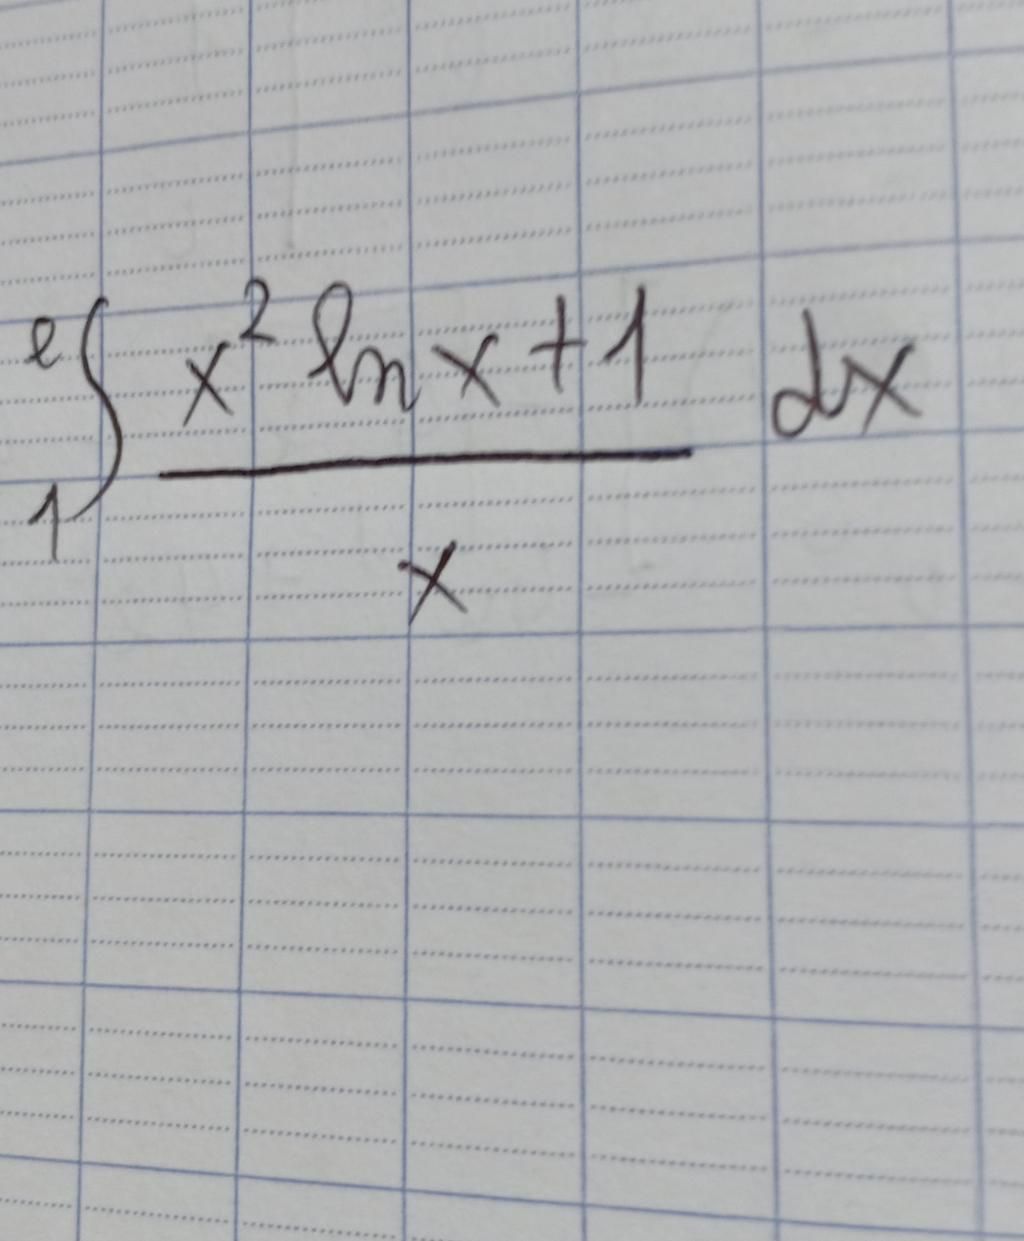 ∫₁ᵉ (x² ln x + 1)/x dx